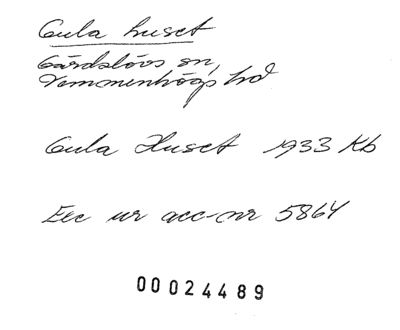 Gula huset
Gärdslövs sn,
Vemmenhögs hd
Gula Huset 1933 Kb
Exc ur acc-nr 5864
00024489